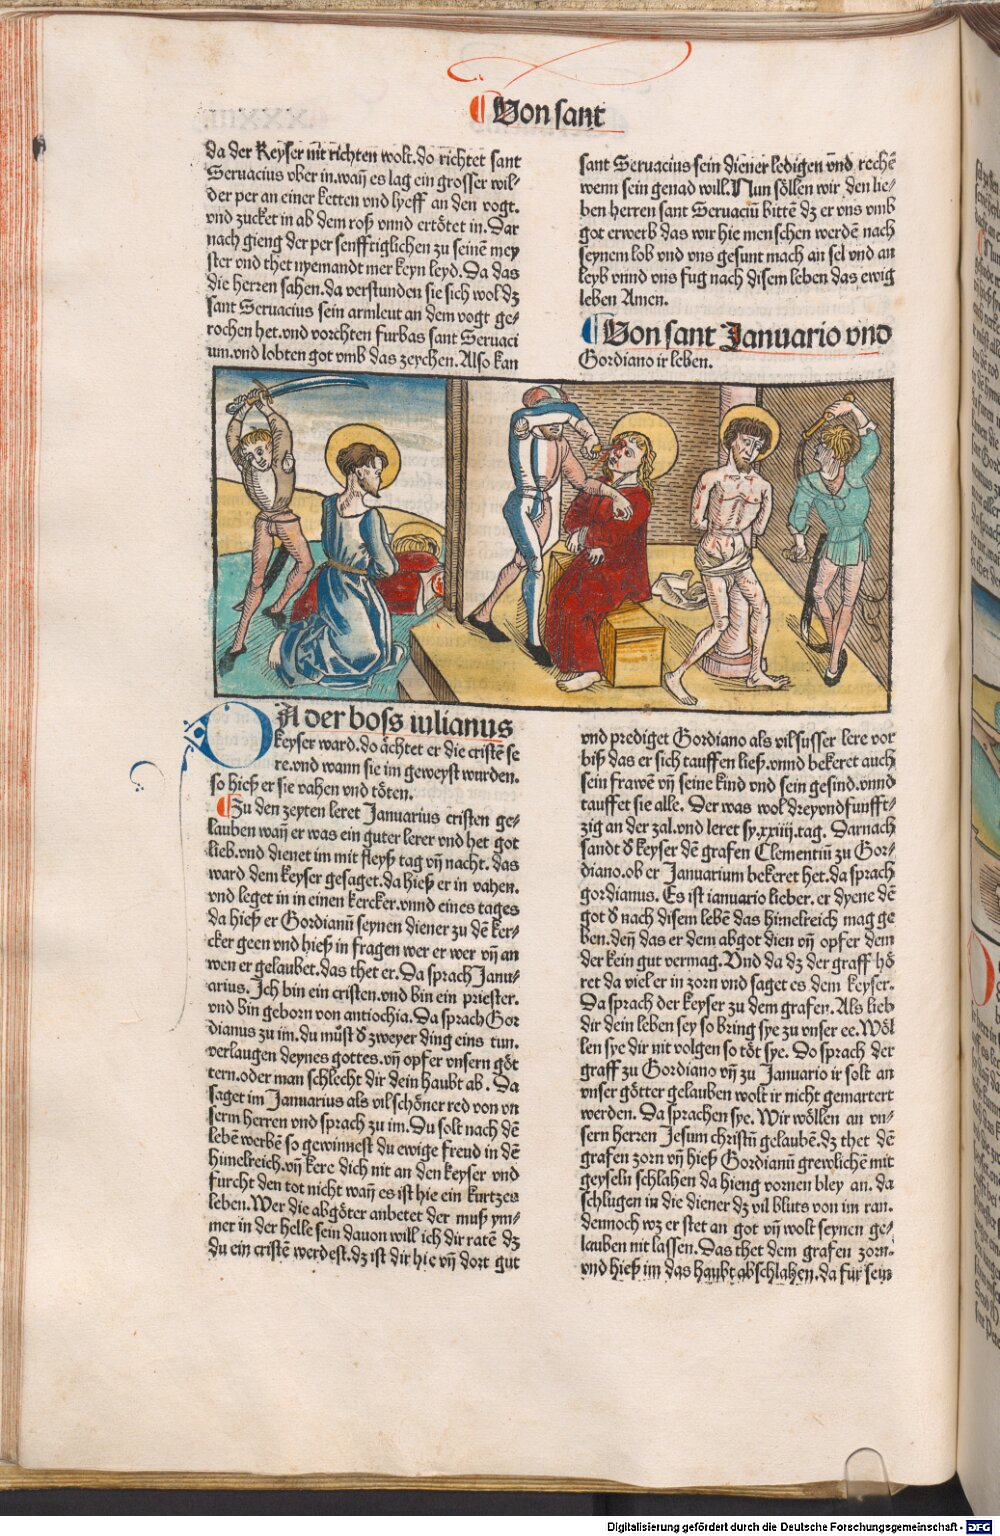 Von sant
da der Keyser nit richten wolt.do richtet sant
Seruacius vber in.wañ es lag ein grosser wil-
der per an einer ketten vnd lyeff an den vogt.
vnd zucket in ab dem roß vnnd ertötet in.Dar
nach gieng der per senfftiglichen zu seinē mey
ster vnd thet nyemandt mer keyn leyd.Da das
die herren sahen.da verstunden sie sich wol dz
sant Seruacius sein armleut an dem vogt ge-
rochen het.vnd vorchten furbas sant Seruaci
um.vnd lobten got vmb das zeychen.Also kan
sant Seruacius sein diener ledigen vnd rechē
wenn sein genad will.Nun söllen wir den lie-
ben herren sant Seruaciū bittē dz er vns vmb
got erwerb das wir hie menschen werdē nach
seynem lob vnd vns gesunt mach an sel vnd an
leyb vnnd vns fug nach disem leben das ewig
leben Amen.
Von sant Januario vnd
Gordiano ir leben.
DA der boss iulianus
keyser ward.do ächtet er die cristē se
re.vnd wann sie im geweyst wurden.
so hieß er sie vahen vnd töten.
Zu den zeyten leret Januarius cristen ge-
lauben wañ er was ein guter lerer vnd het got
lieb.vnd dienet im mit fleyß tag vñ nacht.das
ward dem keyser gesaget.da hieß er in vahen.
vnd leget in in einen kercker.vnnd eines tages
da hieß er Gordianū seynen diener zu dē ker-
cker geen vnd hieß in fragen wer er wer vñ an
wen er gelaubet.das thet er.Da sprach Janu-
arius.Ich bin ein cristen.vnd bin ein priester.
vnd bin geborn von antiochia.Da sprach Gor
dianus zu im.du můst d̕ zweyer ding eins tun.
verlaugen deynes gottes.vñ opfer vnsern göt
tern.oder man schlecht dir dein haubt ab. Da
saget im Januarius als vil schöner red von vn
serm herren vnd sprach zu im.Du solt nach dē
lebē werbē so gewinnest du ewige freud in dē
himelreich.vñ kere dich nit an den keyser vnd
furcht den tot nicht wañ es ist hie ein kurtzes
leben.Wer die abgöter anbetet der muß ym-
mer in der helle sein dauon will ich dir ratē dz
du ein cristē werdest.dz ist dir hie vñ dort gut
vnd prediget Gordiano als vil susser lere vor
biß das er sich tauffen ließ.vnnd bekeret auch
sein frawē vñ seine kind vnd sein gesind.vnnd
tauffet sie alle. Der was wol dreyvndfunfft-
zig an der zal.vnd leret sy.xxiiij.tag. Darnach
sandt d̕ keyser dē grafen Clementiū zu Gor-
diano.ob er Januarium bekeret het.da sprach
gordianus. Es ist ianuario lieber. er dyene dē
got d̕ nach disem lebē das himelreich mag ge
ben.deñ das er dem abgot dien vñ opfer dem
der kein gut vermag.Vnd da dz der graff hö
ret da viel er in zorn vnd saget es dem keyser.
Da sprach der keyser zu dem grafen.Als lieb
dir dein leben sey so bring sye zu vnser ee.Wöl
len sye dir nit volgen so töt sye. Do sprach der
graff zu Gordiano vñ zu Januario ir solt an
vnser götter gelauben wolt ir nicht gemartert
werden. Da sprachen sye.Wir wöllen an vn-
sern herren Jesum christū gelaubē.dz thet dē
grafen zorn vñ hieß Gordianū grewlichē mit
geyseln schlahen da hieng vornen bley an. da
schlugen in die diener dz vil bluts von im ran.
dennoch wz er stet an got vñ wolt seynen ge-
lauben nit lassen.Das thet dem grafen zorn.
vnd hieß im das haubt abschlahen.da fur sein
Digitalisierung gefördert durch die Deutsche Forschungsgemeinschaft - DFG